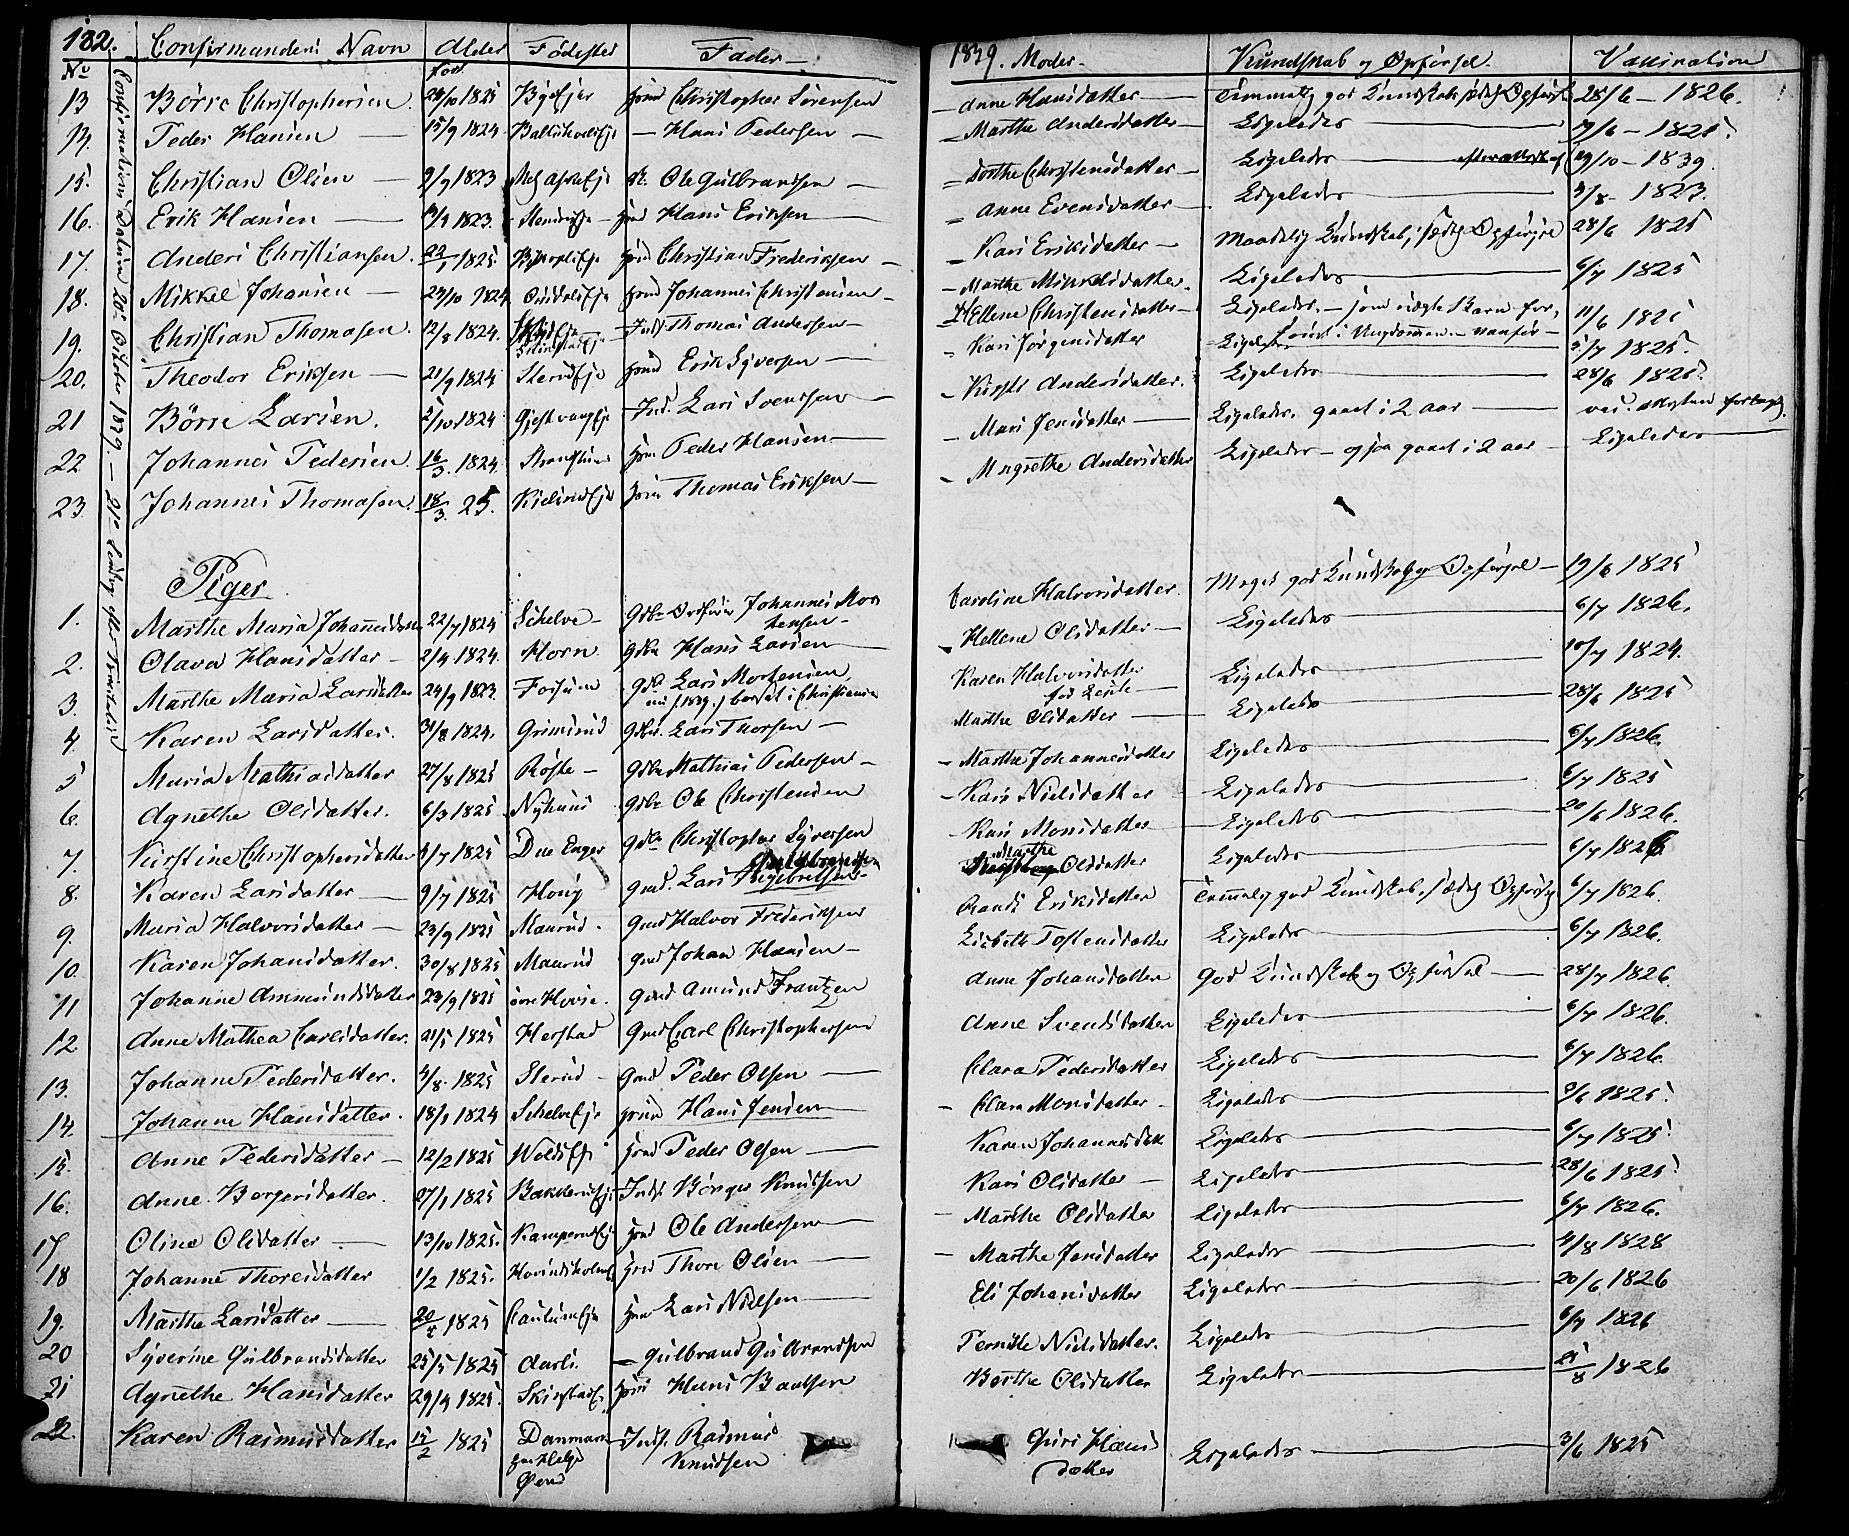 182. Confirmandens Navn Alder Fødested Fader 1839. Moder Kundskab og Opførsel. Vaccination
No født
Confirmation Dalen 20de October 1839. 21de Søndag efter Trinitatis
13 Børre Christophersen. 24/10 1825 Bye Ejer Christopher Sørensen Anne Hansdatter Temmelig god Kundskab, sædelig Opførsel 28/6 - 1826.
14. Peder Hansen 15/9 1824 Hans Pedersen Marthe Andersdatter Ligeledes 19/6 - 1825.
15. Christian Olsen 9/9 1823 Ole Gulbrandsen Dorthe Christensdatter Ligeledes 29/10 - 1839.
16. Erik Hansen 1823. Hans Eriksen Anne Evensdatter Ligeledes 3/8 - 1823.
17. Anders Christiansen. 22/1 1825 Christian Frederiksen Kari Eriksdatter Maadelig Kundskab, sædelig Opførsel 28/6 1825
18. Mikkel Johansen 24/10 1824 Johannes Christensen Marthe Ligeledes 6/7 1825
19. Christian Thomasen. 12/8 1824. Inds Thomas Andersen Hellene Christensdatter Ligeledes. 11/6 1825
20. Theodor Eriksen 21/9 1824 Sterud Eje Erik Syversen Kari Jørgensdatter Ligeledes 5/7 1825.
21 Børre Larsen. 2/10 1824 Inds. Lars Svensen Kirsti Andersdatter. Ligeledes 28/6 1825.
22 Johannes Pedersen. 16/3. 1824 Peder Hansen Mari Jensdatter Ligeledes. gaaet i 2 aar vac. Attesten forlagt.
23. Johannes Thomasen. 18/3. 25. Thomas Eriksen Magrethe Andersdatter Ligeledes - ogsaa gaaet i 2 aar Ligeledes
Piger
1. Marthe Maria Johannesdatter 22/7 1824 Schelve Johannes Mortensen Caroline Halvorsdatter. Meget god Kundskab og Opførsel 19/6 1825
2. Olava Hansdatter 2/4 1824. Horn Gdbr Hans Larsen Hellene Olsdatter Ligeledes 6/7 1826.
3. Marthe Maria Larsdatter 24/9 1823. Fossum Gdbr Lars Mortensen, nu 1839. boesat i Christiania Karen Halvorsdatter Ligeledes 10/7 1824.
4. Karen Larsdatter. 31/8 1824. Grimsrud Gdbr. Lars Thorsen Marthe Olsdatter Ligeledes 28/6 1825
5 Maria Mathiasdatter 27/8 1825 Røste Gdbr Mathias Pedersen Marthe Johannesdatter Ligeledes 6/7 1826.
6. Agnethe Olsdatter. 6/3 1825 Nyhuus Gdbr Ole Christensen Kari Nielsdatter Ligeledes 6/7 1825
7. Kirstine Christophersdatter 4/7 1825 Due Enger Gdbr Christopher Syversen Kari Monsdatter Ligeledes 20/6 1826.
8. Karen Larsdatter 9/7 1825 Houg Gmd. Lars Gulbrandsen Marthe Olsdatter Ligeledes 6/7 1826
9. Maria Halvorsdatter 23/9 1825 Maurud. Gmd Halvor Frederiksen Randi Eriksdatter Temmelig god Kundskab, sædelig Opførsel 6/7 1826.
10. Karen Johansdatter. 30/8 1825 Maurud Gmd Johan Hansen Lisbeth Tostensdatter Ligeledes 6/7 1826.
11 Johanne Ammundsdatter 23/9 1825 øvre Hovie. Gmd Amund Frantzen Anne Johansdatter God Kundskab og Opførsel 28/7 1826.
12 Anne Mathea Carlsdatter. 21/5 1825 Herstad Gmd Carl Christophersen Anne Svendsdatter Ligeledes 6/7 1826.
13. Johanne Pedersdatter. 4/8 1825 Sterud Gmd Peder Olsen Clara Pedersdatter Ligeledes 6/7 1826.
14. Johanne Hansdatter. 18/1 1824 Schelve Eje Hans Jensen Clara Monsdatter Ligeledes 1825.
15. Anne Pedersdatter 12/2 1825 Peder Olsen Karen Johannesdatt Ligeledes 6/7 1825.
16. Anne Borgersdatter. 27/1 1825 Inds Børger Knudsen Kari Olsdatter Ligeledes 28/6 1825.
17 Oline Olsdatter 13/10 1825. Ole Andersen Marthe Olsdatter Ligeledes 6/7 1826.
18 Johanne Thoresdatter 1/2 1825. Thore Olsen Marthe Jensdatter Ligeledes 4/8 1828
19. Marthe Larsdatter 1825 Lars Nielsen Eli Johansdatter Ligeledes 20/6 1826
20 Syverine Gulbrandsdatter 25/5 1825 Aarli Gulbrand Gulbrandsen Pernille Nielsdatter. Ligeledes 6/7 1826
21 Agnethe Hansdatter 29/4 1825. Hans Berthe Olsdatter Ligeledes 1826
22. Karen Rasmusdatter 15/2 1825 Danmark Inds. Rasmus Knudsen Guri Hansdatter Ligeledes 3/6 1825